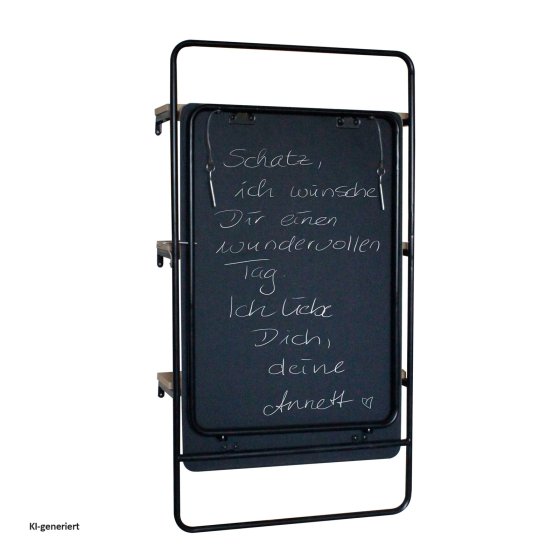 Schatz,
ich wünsche
Dir einen
wundervollen
Tag.
Ich liebe
Dich,
deine
Annett ♡
KI-generiert